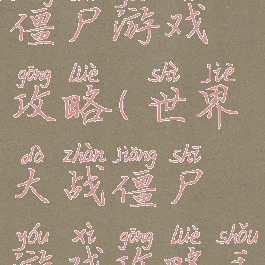 僵尸游戏
gōng lüè shì jiè
攻略(世界
dà zhàn jiāng shī
大战僵尸
yóu xì gōng lüè shǒu